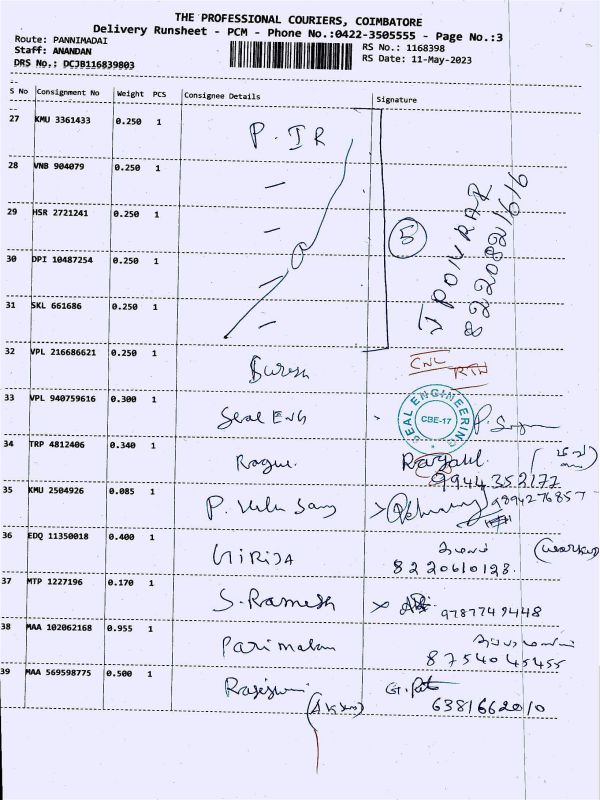 THE PROFESSIONAL COURIERS, COIMBATORE
Delivery Runsheet - PCM - Phone No.:0422-3505555 - Page No.:3
Route: PANNIMADAI
Staff: ANANDAN
DRS No.: DCJB116839803
RS No.: 1168398
RS Date: 11-May-2023
S No Consignment No Weight PCS Consignee Details Signature
27 KMU 3361433 0.250 1 P. IR
28 VNB 904079 0.250 1
29 HSR 2721241 0.250 1
5
J PONRAR
8220821616
30 DPI 10487254 0.250 1
31 SKL 661686 0.250 1
32 VPL 216686621 0.250 1 Suresh CNL RTN
33 VPL 940759616 0.300 1 Seal ENG
SEAL ENGINEERING
CBE-17
34 TRP 4812406 0.340 1 Ragu
9944352177
35 KMU 2504926 0.085 1 P. Velu Samy 9894276857
36 EDQ 11350018 0.400 1 GIRIJA
8220610128.
37 MTP 1227196 0.170 1 S. Ramesh 9787749448
38 MAA 102062168 0.955 1 Parimalam
8754045455
39 MAA 569598775 0.500 1
6381662010